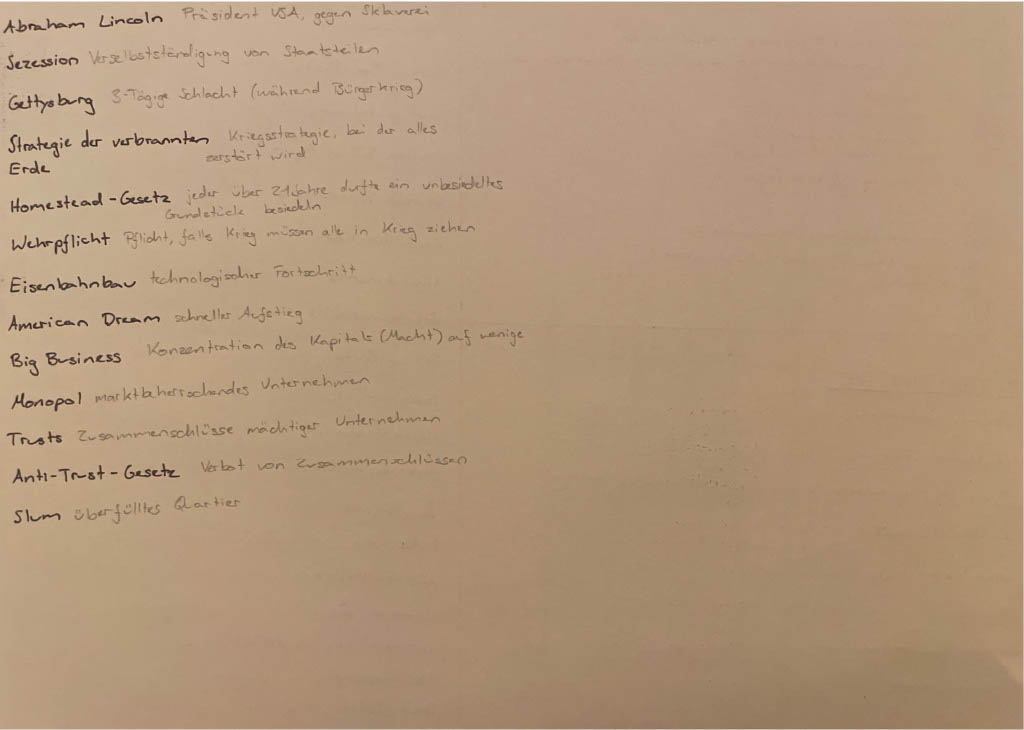 Abraham Lincoln Präsident USA, gegen Sklaverei
Sezession Verselbstständigung von Staatsteilen
Gettysburg 3-Tägige Schlacht (während Bürgerkrieg)
Strategie der verbrannten Kriegsstrategie, bei der alles
Erde zerstört wird
Homestead-Gesetz jeder über 21 Jahre dufte ein unbesiedeltes
Gundstück besiedeln
Wehrpflicht Pflicht, falls Krieg müssen alle in Krieg ziehen
Eisenbahnbau technologischer Fortschritt
American Dream schneller Aufstieg
Big Business Konzentration des Kapitals (Macht) auf wenige
Monopol marktbeherrschendes Unternehmen
Trusts Zusammenschlüsse mächtiger Unternehmen
Anti-Trust-Gesetz Verbot von Zusammenschlüssen
Slum überfülltes Quartier